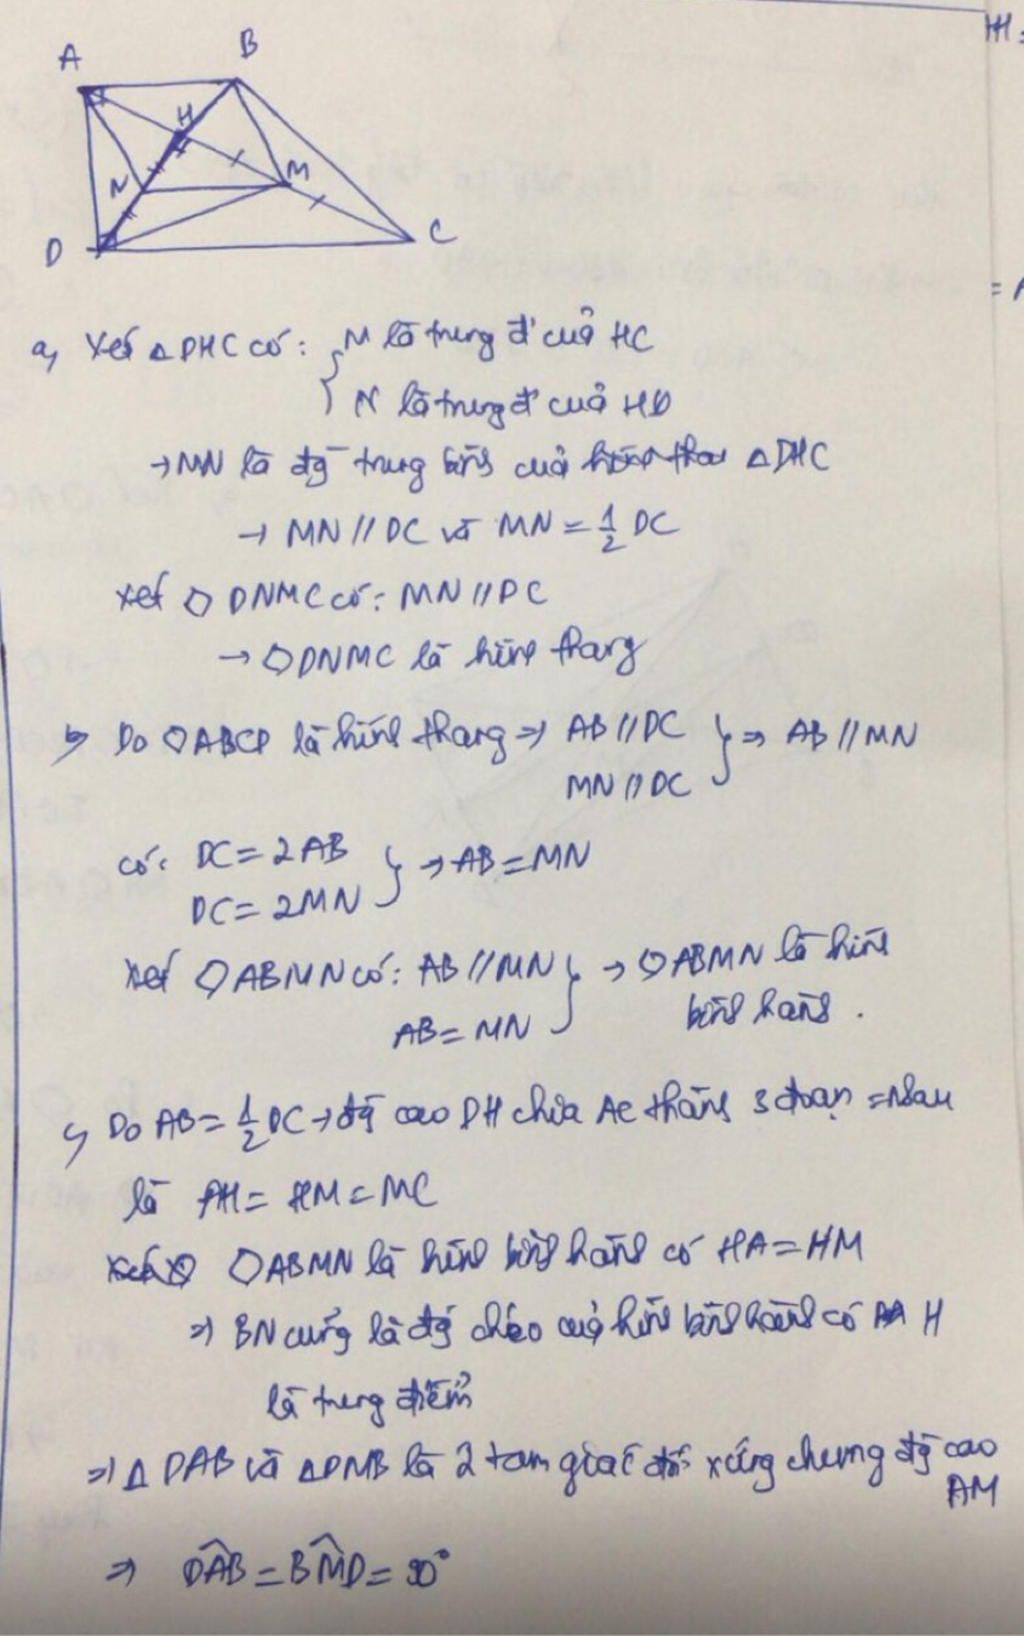 A
B
H
N
M
D
C
a, Xét △DHC có: { M là trung đ' của HC
N là trung đ' của HD
→ MN là đg trung bình của △DHC
→ MN // DC và MN = 1/2 DC
Xét ◇ DNMC có: MN // DC
→ ◇DNMC là hình thang
b, Do ◇ABCD là hình thang ⇒ AB // DC } ⇒ AB // MN
MN // DC
có: DC = 2AB } → AB = MN
DC = 2MN
Xét ◇ABMN có: AB // MN } → ◇ABMN là hình
AB = MN bình hành.
c, Do AB = 1/2 DC → đg cao DH chia AC thành 3 đoạn = nhau
là AH = HM = MC
◇ABMN là hình bình hành có HA = HM
⇒ BN cũng là đg chéo của hình bình hành có H
là trung điểm
⇒ △DAB và △DMB là 2 tam giác đối xứng chung đg cao
AM
⇒ DAB = BMD = 90°